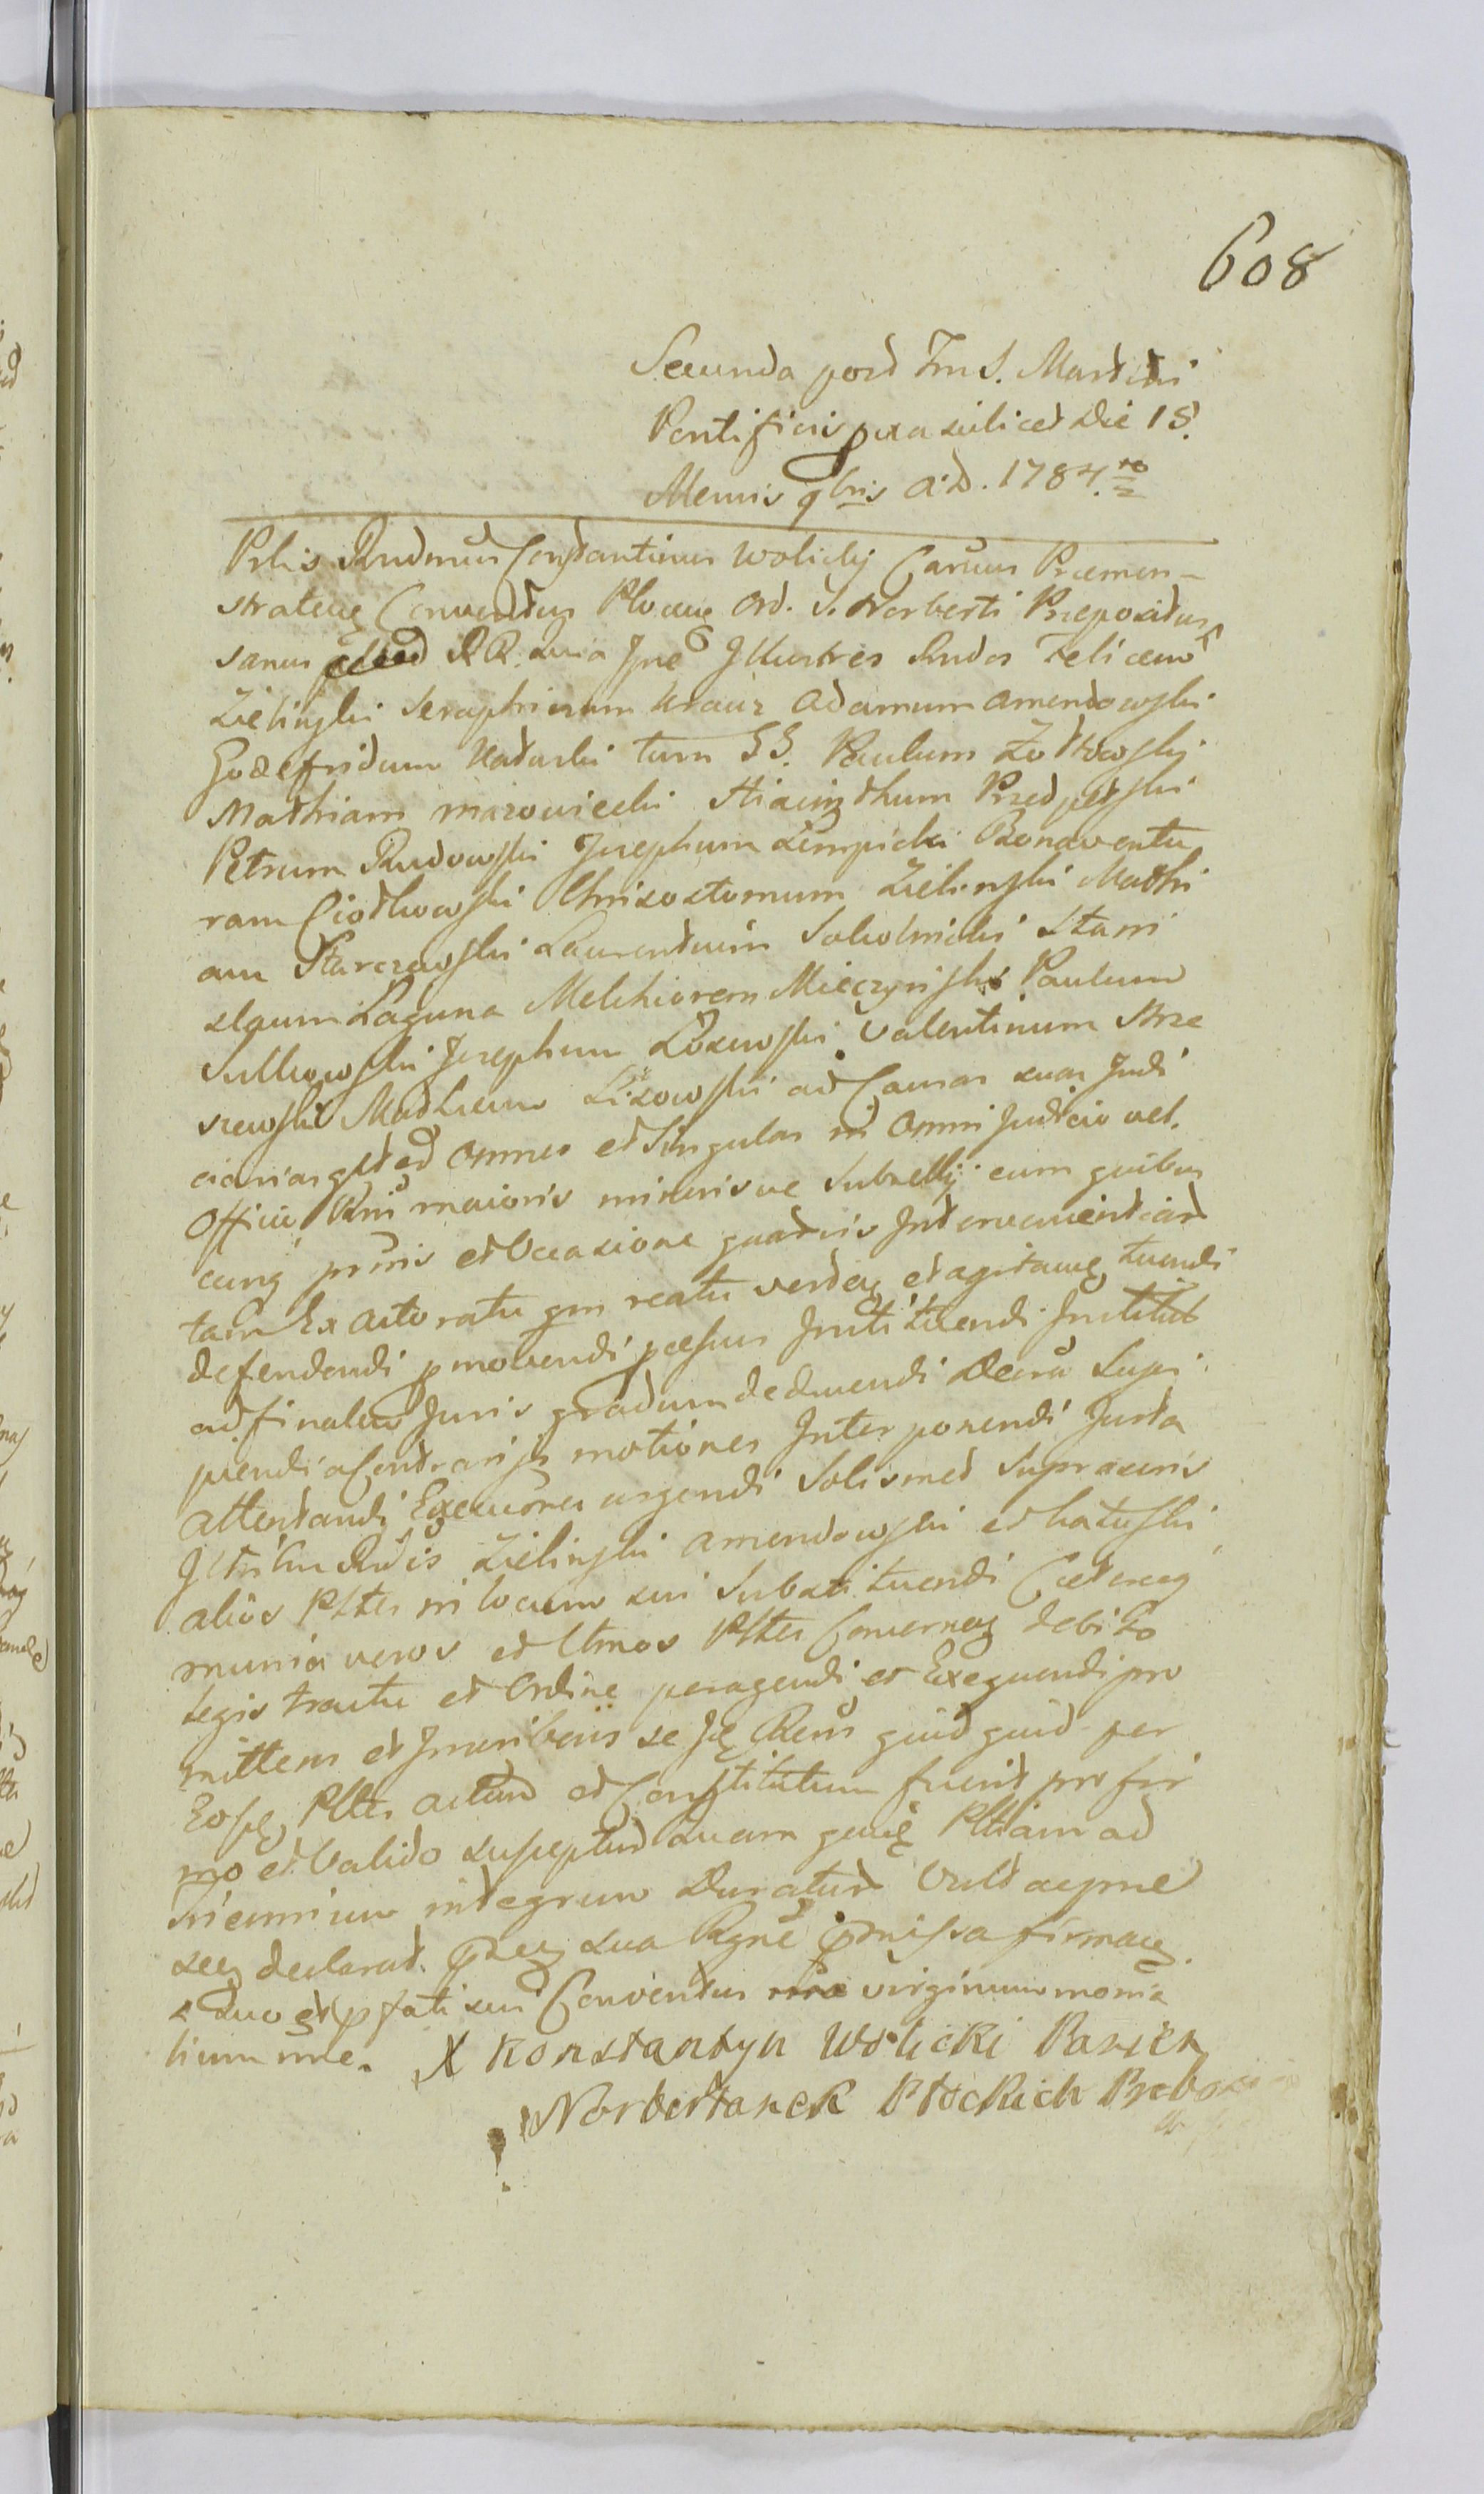 608
Secunda post Fm S. Martini
Pontificis pxa scilicet Die 15.
Mensis 9bris A.D. 1784.to
Plris Rndmus Constantinus Wolicky Carum Præmon-
stratens Conventus Plocens Ord. S. Norberti Præpositus
sanus RR. Sua Gnæ Illustres Rndos Felicem
Zielinski Seraphinum Krauz Adamum Amendowski
Godefridum Hatuski tum GG. Paulum Zołtowski
Mathiam Mazowiecki Hiacinthum Przedpełski
Petrum Rudowski Josephum Lempicki Bonaventu
ram Ciołkowski Chrisostomum Zielinski Mathi
am Starczewski Laurentium Sokolnicki Stani
slaum Laguna Melchiorem Mieczynski Paulum
Sulkowski Josephum Losowski Valentinum Strze
szewski Mathæum Lisowski ad Causas suas Judi
ciarias omnes et singulas in Omni Judicio vel
Officio Rni maioris minorisve Subsellij cum quibus
cunq prnis et Occasione quarvis Intervenient
tam Ex actoratu qm reatu verten et agitan tuendi
defendendi pmovendi pcessus Instituendi Institut
ad finalem Juris gradum deducendi Decra Susci
piendi a Contrarijs motiones Interponendi Justa
attentandi Exeones urgendi Solismet Suprascris
Illribu Rndis Zielinski Amendowski et Hatuski
alios Plttes in locum sui Substituendi Cæteraq
munia veros et ltmos Plttes Concernen debito
legis tractu et Ordine peragendi et Exequendi pro
mittens et Inscribens se Rem quidquid per
Eosq Plttes actum et Constitutum fuerit pro fir
mo et Valido suscepturum Quam quidem Plttiam ad
Triennium integrum Duraturam Vult acpme
seq declarat. sua pmissa firman
Suo et pfati sui Conventus virginum monia
lium nne. X Konstantyn Wolicki Panien
Norbertanek Płockich Probo